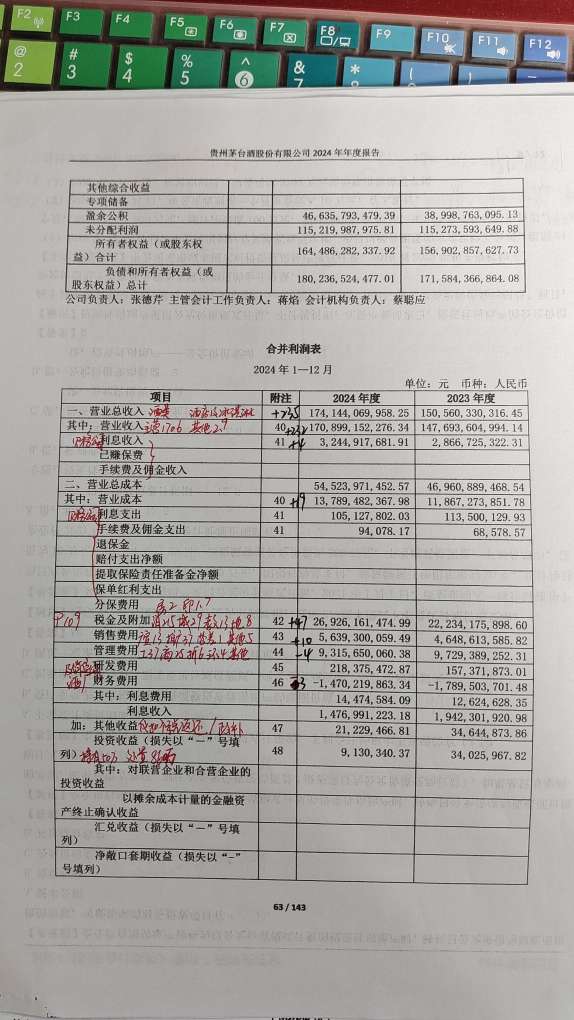 F2 F3 F4 F5 F6 F7 F8 F9 F10 F11 F12
@ # $ % ^ & * ( )
2 3 4 5 6 7
贵州茅台酒股份有限公司 2024 年年度报告
其他综合收益
专项储备
盈余公积 46,635,793,479.39 38,998,763,095.13
未分配利润 115,219,987,975.81 115,273,593,649.88
所有者权益（或股东权
益）合计 164,486,282,337.92 156,902,857,627.73
负债和所有者权益（或
股东权益）总计 180,236,524,477.01 171,584,366,864.08
公司负责人：张德芹 主管会计工作负责人：蒋焰 会计机构负责人：蔡聪应
合并利润表
2024 年 1—12 月
单位：元 币种：人民币
项目 附注 2024 年度 2023 年度
一、营业总收入 174,144,069,958.25 150,560,330,316.45
其中：营业收入 40 170,899,152,276.34 147,693,604,994.14
利息收入 41 3,244,917,681.91 2,866,725,322.31
已赚保费
手续费及佣金收入
二、营业总成本 54,523,971,452.57 46,960,889,468.54
其中：营业成本 40 +19 13,789,482,367.98 11,867,273,851.78
利息支出 41 105,127,802.03 113,500,129.93
手续费及佣金支出 41 94,078.17 68,578.57
退保金
赔付支出净额
提取保险责任准备金净额
保单红利支出
分保费用
P109 税金及附加 42 26,926,161,474.99 22,234,175,898.60
销售费用 43 +10 5,639,300,059.49 4,648,613,585.82
管理费用 44 -4 9,315,650,060.38 9,729,389,252.31
研发费用 45 218,375,472.87 157,371,873.01
财务费用 46 -1,470,219,863.34 -1,789,503,701.48
其中：利息费用 14,474,584.09 12,624,628.35
利息收入 1,476,991,223.18 1,942,301,920.98
加：其他收益 47 21,229,466.81 34,644,873.86
投资收益（损失以“－”号填
列） 48 9,130,340.37 34,025,967.82
其中：对联营企业和合营企业的
投资收益
以摊余成本计量的金融资
产终止确认收益
汇兑收益（损失以“－”号填
列）
净敞口套期收益（损失以“-”
号填列）
63 / 143